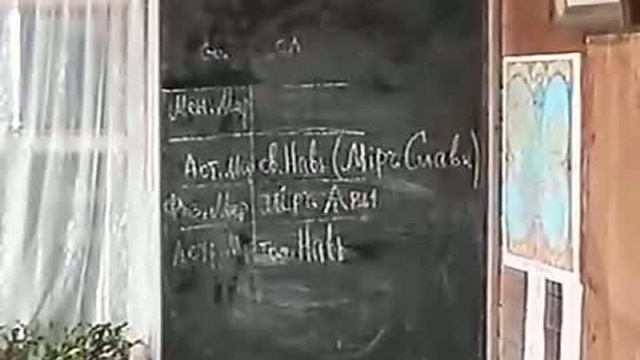 во. сл
Мен. Мир
Аст. Мир св. Навь (Мiръ Слави)
Физ. Мир Мiръ Яви
Аст. Мир тём. Навь